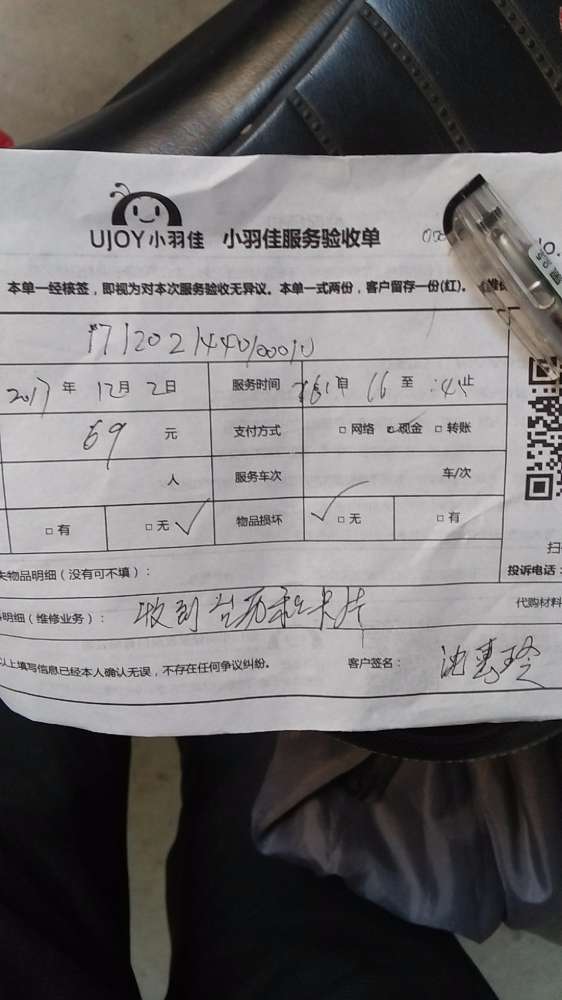 UJOY小羽佳 小羽佳服务验收单
本单一经核签，即视为对本次服务验收无异议。本单一式两份，客户留存一份(红)。
2017 年 12月 2日 服务时间 自 16 至 止
69 元 支付方式 □ 网络 ☑ 现金 □ 转账
人 服务车次 车/次
□ 有 □ 无 ✓ 物品损坏 ✓ □ 无 □ 有
失物品明细（没有可不填）： 投诉电话：
明细（维修业务）： 收到台历和卡片 代购材料
以上填写信息已经本人确认无误，不存在任何争议纠纷。 客户签名： 沈惠玲